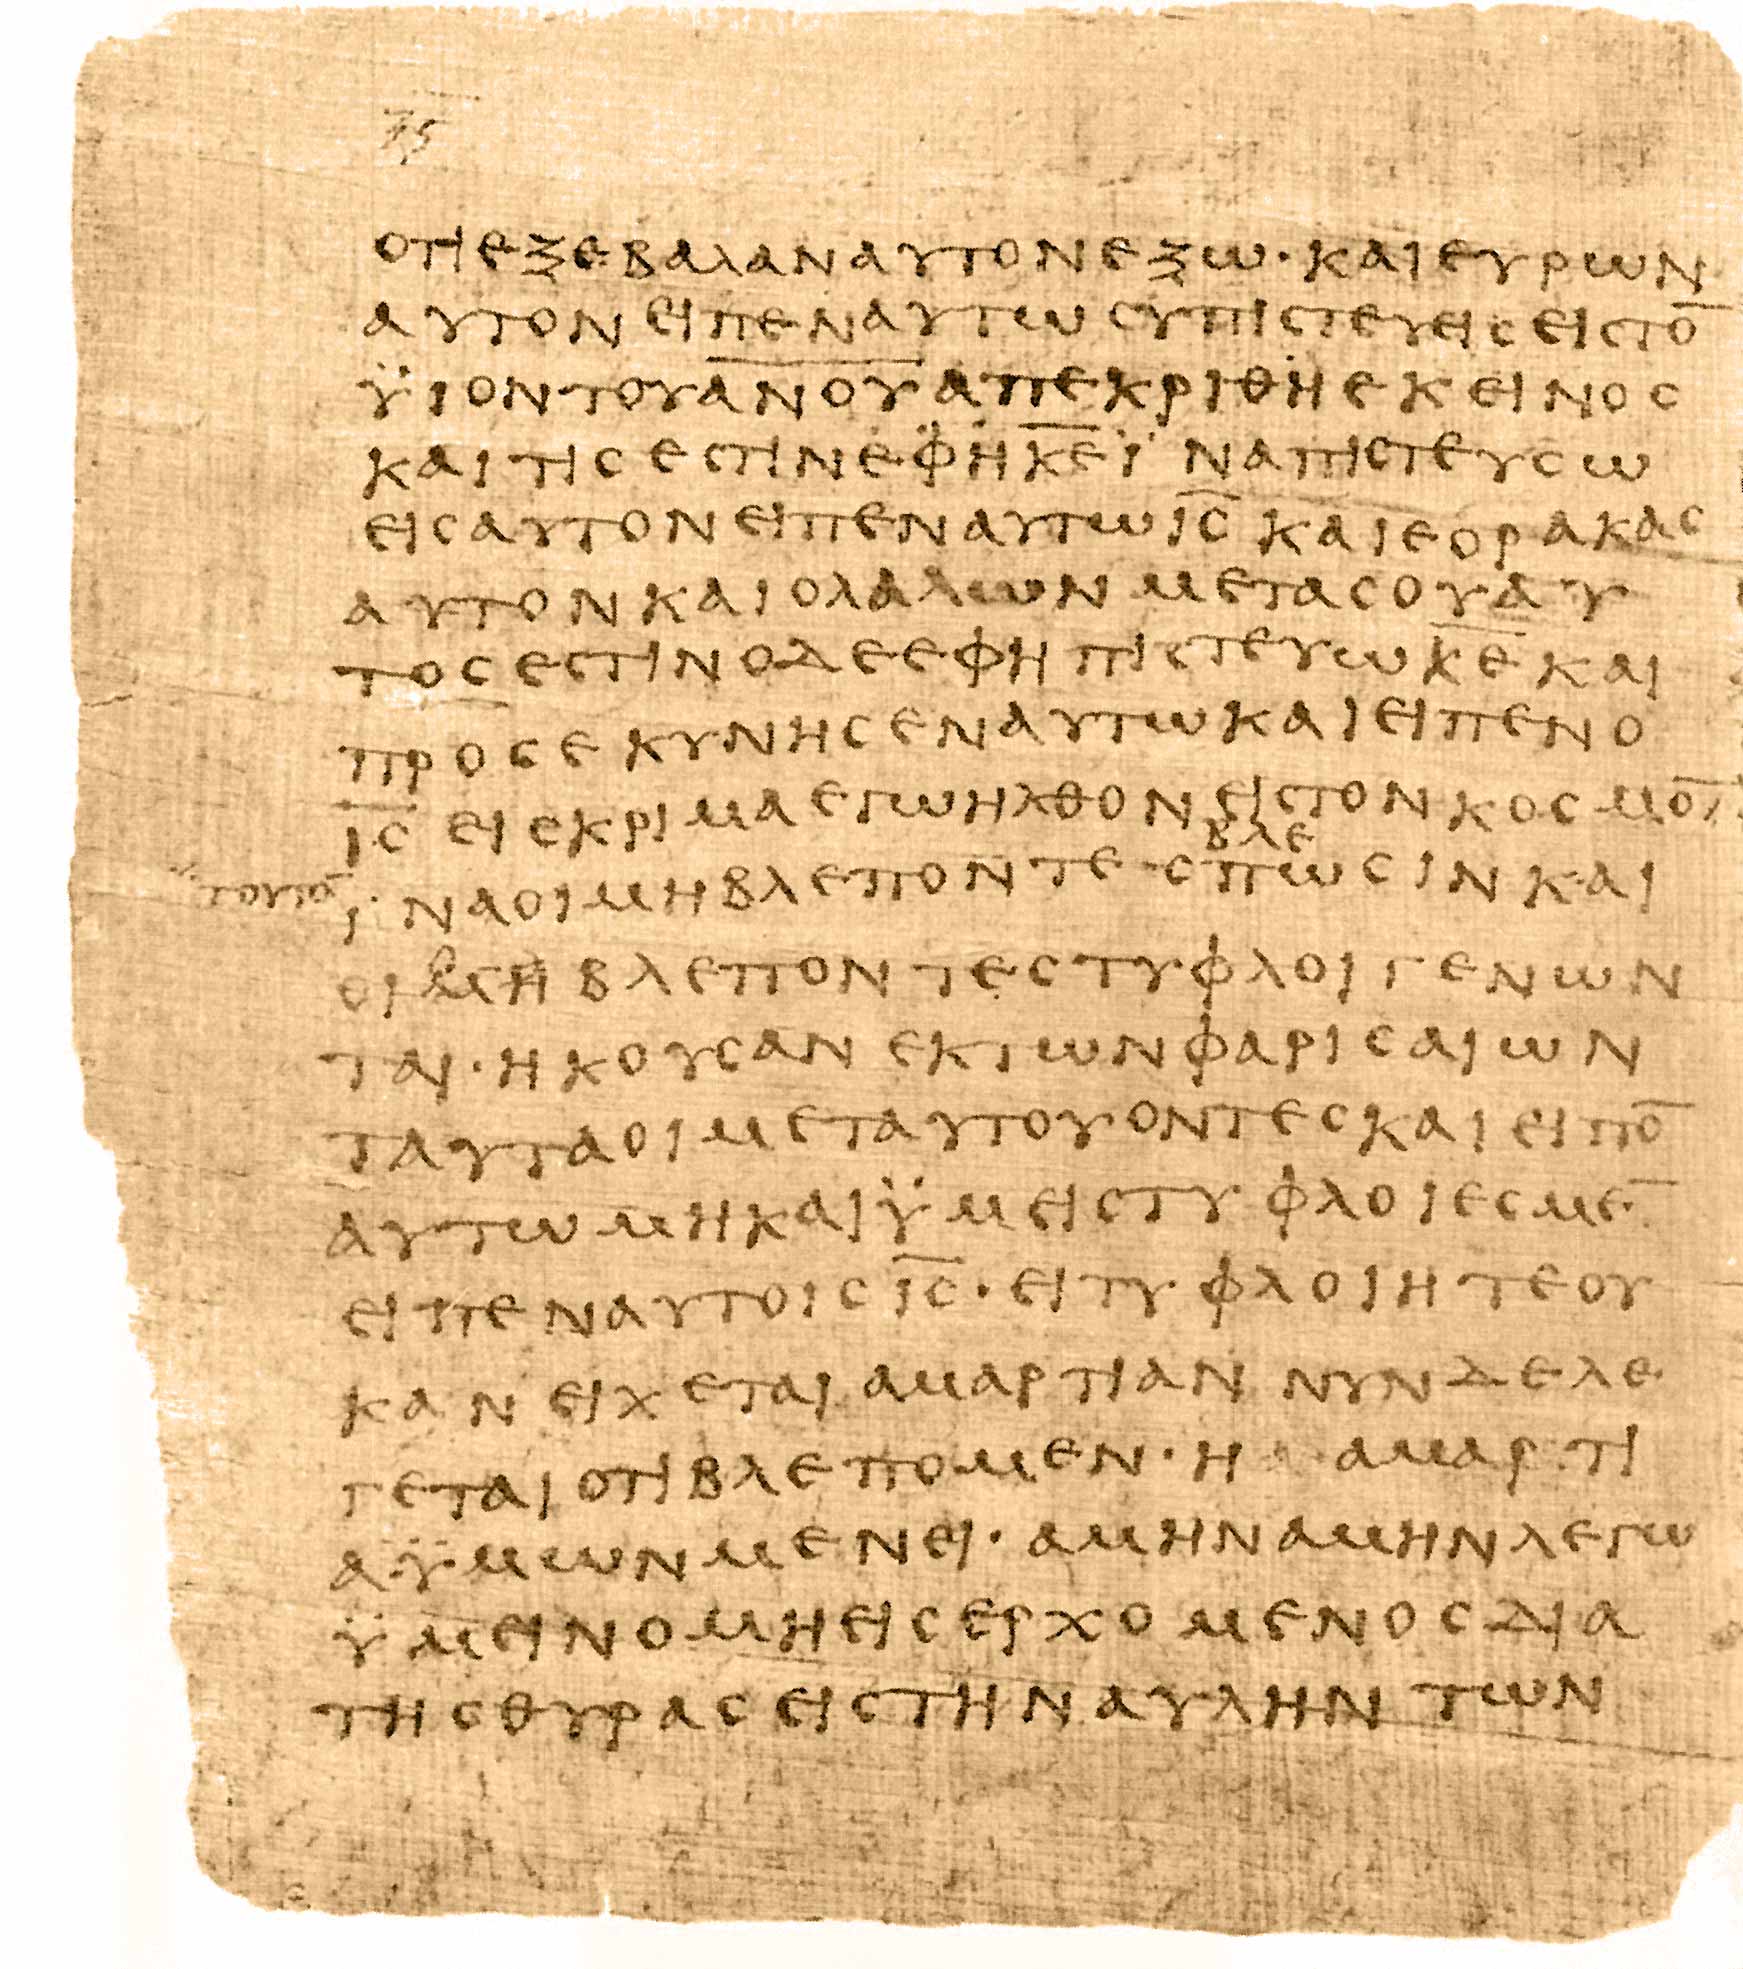 ος
οτιεξεβαλαναυτονεξω·καιευρων
αυτονειπεναυτωσυπιστευειςειστο̅
ϋιοντουα̅ν̅ο̅υ̅απεκριθηεκεινος
καιτιςεστινεφηκ̅ε̅ϊναπιστευσω
ειςαυτονειπεναυτωι̅ς̅καιεορακας
αυτονκαιολαλωνμετασουαυ
τοςεστινοδεεφηπιστευωκ̅ε̅και
προσεκυνησεναυτωκαιειπενο
ι̅ς̅ειςκριμαεγωηλθονειςτονκοσμο̅
βλε
τουτο̅ ϊναοιμηβλεποντεςπωσινκαι
οιμηβλεποντεςτυφλοιγενων
ται·ηκουσανεκτωνφαρισαιων
ταυταοιμεταυτουοντεςκαιειπο̅
αυτωμηκαιϋμειςτυφλοιεσμε̅
ειπεναυτοιςι̅ς̅·ειτυφλοιητεου
κανειχεταιαμαρτιαννυνδελε
γεταιοτιβλεπομεν·η αμαρτι
αϋμωνμενει·αμηναμηνλεγω
ϋμεινομηεισερχομενοςδια
τηςθυραςειςτηναυληντων